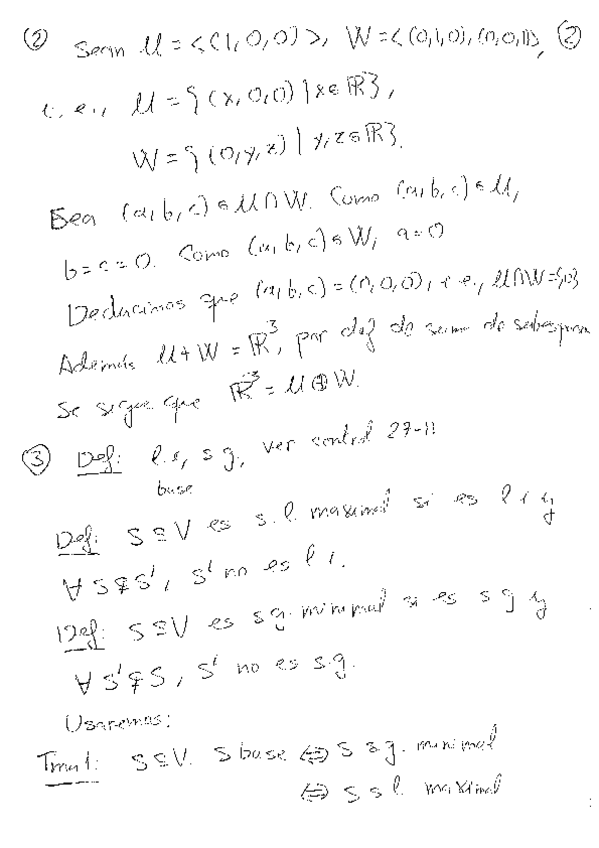 ② Sean U = <(1,0,0)>, W = <(0,1,0),(0,0,1)>, ②
i.e., U = {(x,0,0) | x∈ℝ},
W = {(0,y,z) | y,z∈ℝ}.
Sea (a,b,c) ∈ U∩W. Como (a,b,c) ∈ U,
b=c=0. Como (a,b,c) ∈ W, a=0
Deducimos que (a,b,c) = (0,0,0), i.e., U∩W={0}
Además U+W = ℝ³, por def de suma de subespacios
Se sigue que ℝ³ = U⊕W.
③ Def: l.i, s.g., ver control 27-11
base
Def: S⊆V es s.l. maximal si es l i y
∀ S⊊S', S' no es l i.
Def: S⊆V es s.g. minimal si es s g y
∀ S'⊊S, S' no es s.g.
Usaremos:
Tma 1: S⊆V. S base ⇔ S s g. minimal
⇔ S s l. maximal